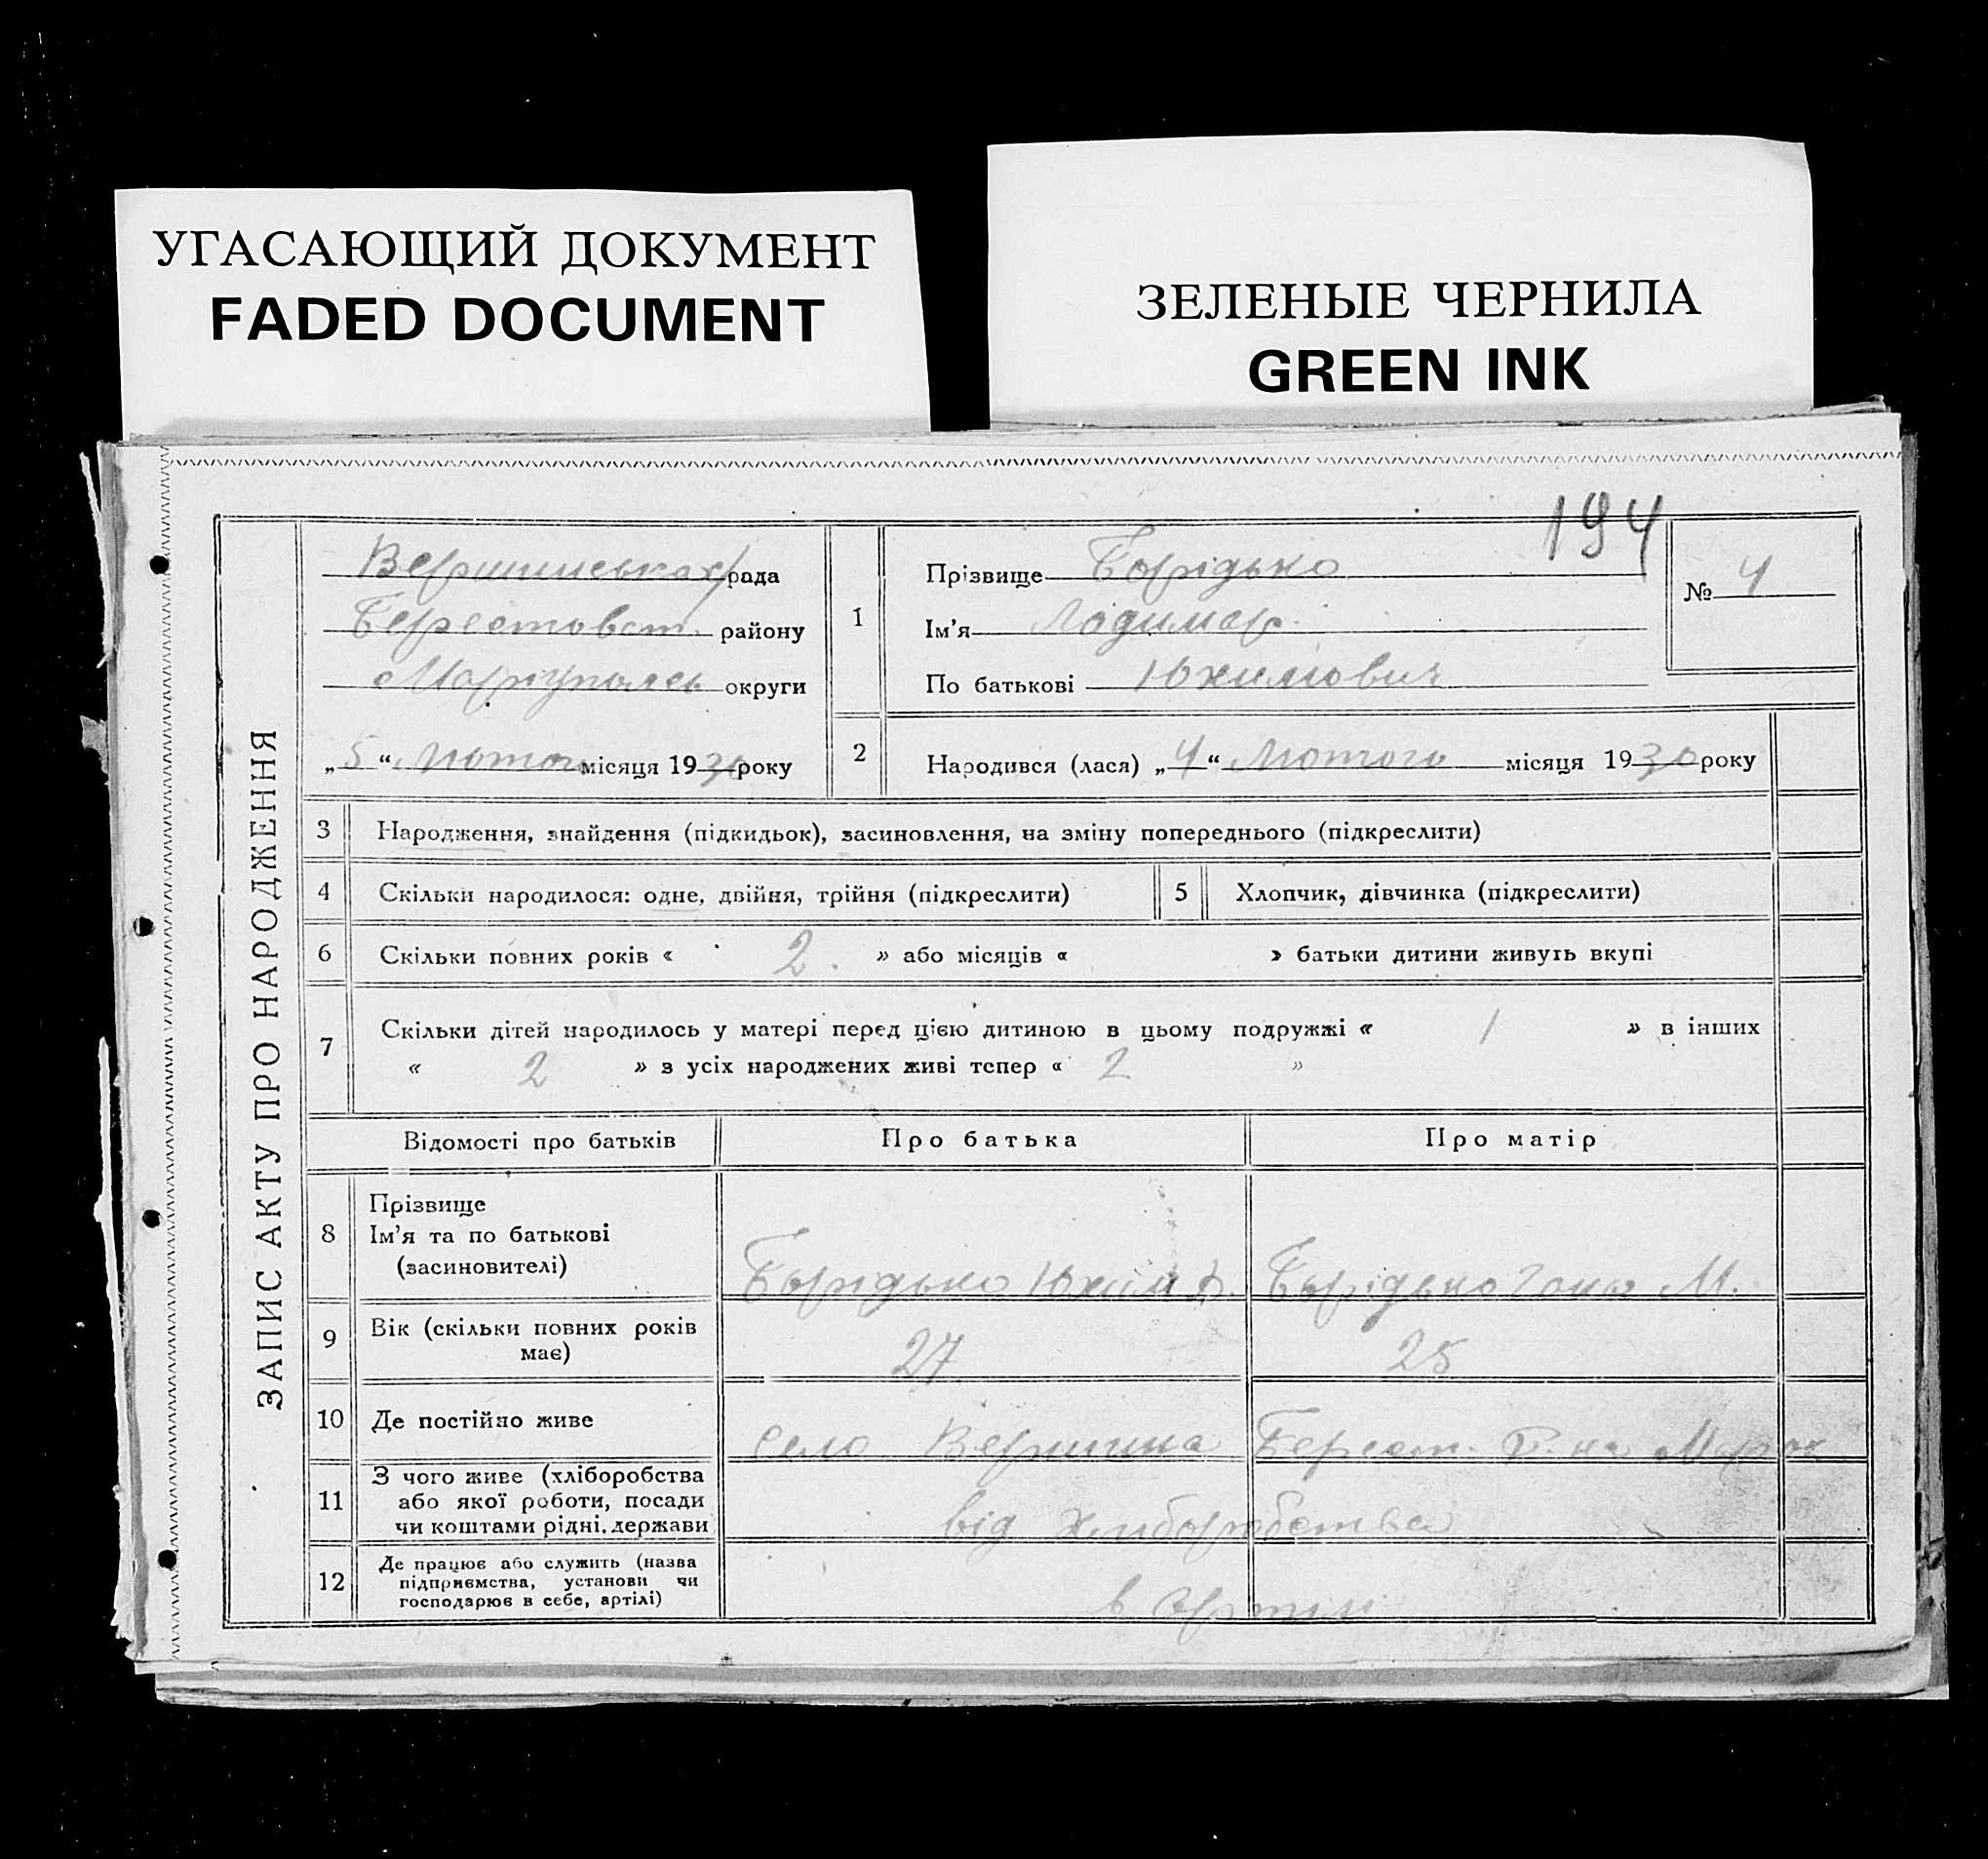 УГАСАЮЩИЙ ДОКУМЕНТ
FADED DOCUMENT
ЗЕЛЕНЫЕ ЧЕРНИЛА
GREEN INK
194
ЗАПИС АКТУ ПРО НАРОДЖЕННЯ
Вершинська с/рада
Берестовськ. району
округи
„5“ Лютого місяця 1930 року
1
Прізвище Борідько
Ім'я Лодимер.
По батькові Юхимович
№ 4
2
Народився (лася) „4“ Лютого місяця 1930 року
3 Народження, знайдення (підкидьок), засиновлення, на зміну попереднього (підкреслити)
4 Скільки народилося: одне, двійня, трійня (підкреслити)
5 Хлопчик, дівчинка (підкреслити)
6 Скільки повних років « 2. » або місяців « » батьки дитини живуть вкупі
7 Скільки дітей народилось у матері перед цією дитиною в цьому подружжі « 1 » в інших
« 2 » з усіх народжених живі тепер « 2 »
Відомості про батьків Про батька Про матір
8 Прізвище
Ім'я та по батькові
(засиновителі)
Борідько Юхим Борідько М.
9 Вік (скільки повних років
має)
27 25
10 Де постійно живе
Село Вершина Берест. Р. на
11 З чого живе (хліборобства
або якої роботи, посади
чи коштами рідні, держави
від хліборобства
12 Де працює або служить (назва
підприємства, установи чи
господарює в себе, артілі)
в артілі